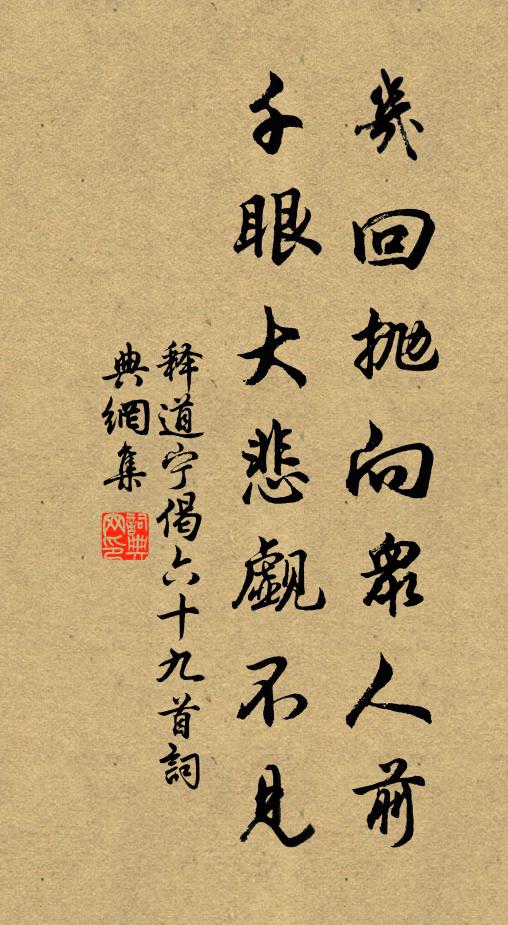 幾回抛向眾人前
千眼大悲覷不見
释道宁偈六十九首詞
典網集
詞典網印